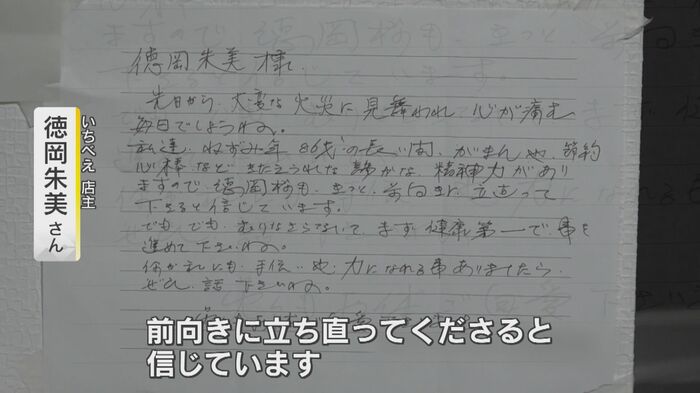 徳岡朱美様
先日から、大変な火災に見舞われ 心が痛む
毎日でしょうね。
私達、ねずみ年 86才の長い間、がまんや、節約
心棒など きたえられた 静かな 精神力があり
ますので、徳岡様も、きっと、前向きに、立直って
下さると信じています。
でも、でも、むりなさらないで、まず 健康第一で、事を
進めて下さいね。
何か私にも、手伝いや、力になれる事ありましたら、
ぜひ、話 下さいね。
いちべえ 店主
徳岡朱美さん
前向きに立ち直ってくださると
信じています